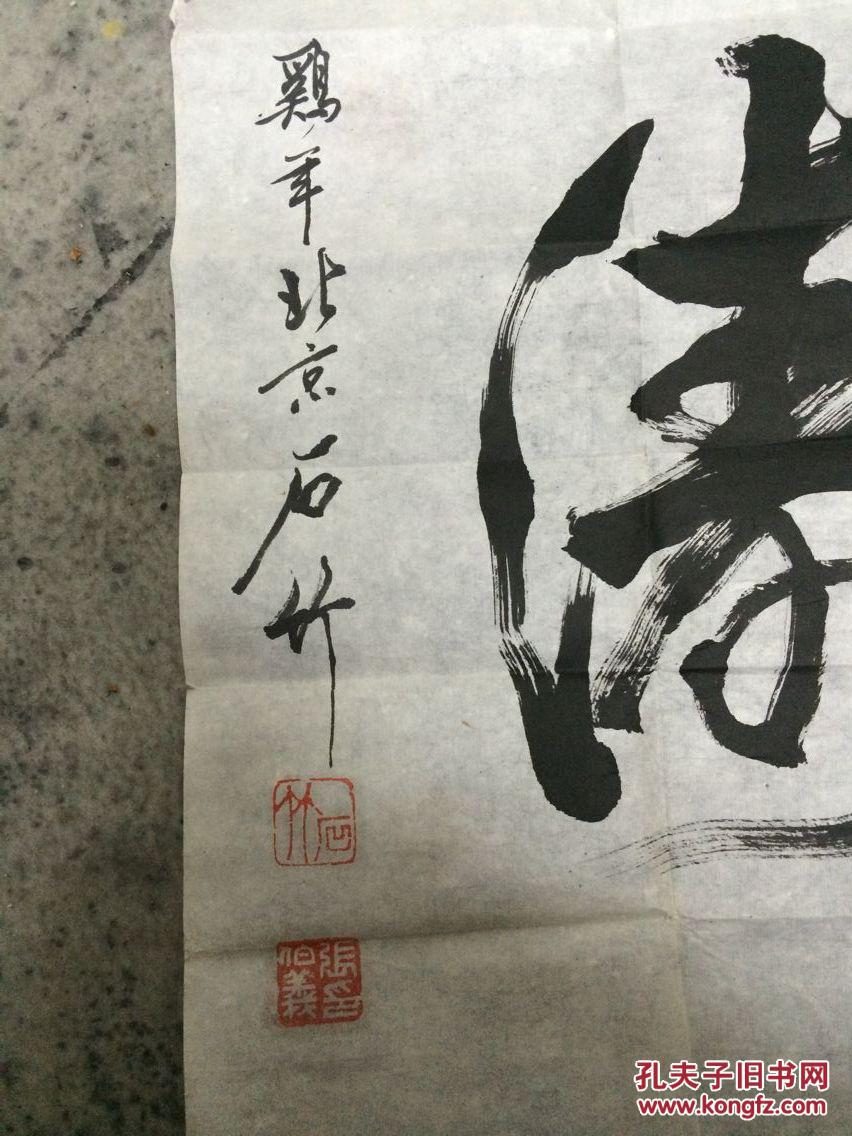 鷄年北京石竹
石竹
張印伯義
孔夫子旧书网
www.kongfz.com